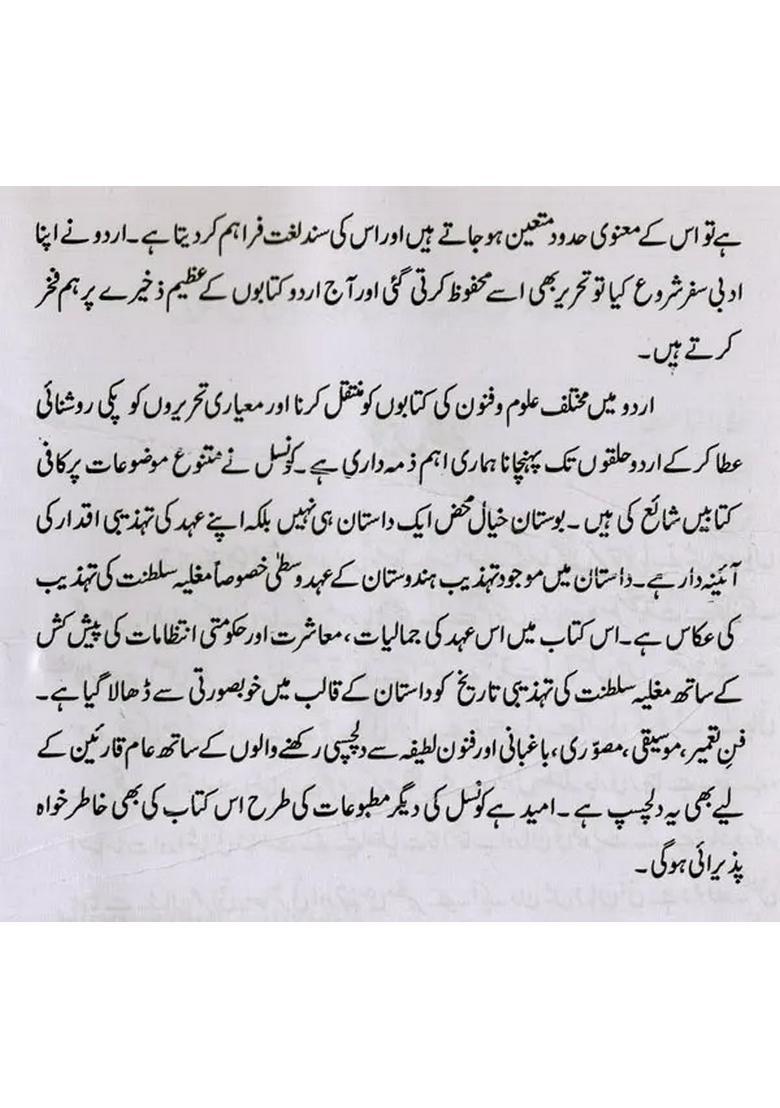 ہے تو اس کے معنوی حدود متعین ہوجاتے ہیں اور اس کی سند لغت فراہم کردیتا ہے۔ اردو نے اپنا
ادبی سفر شروع کیا تو تحریر بھی اسے محفوظ کرتی گئی اور آج اردو کتابوں کے عظیم ذخیرے پر ہم فخر
کرتے ہیں۔
اردو میں مختلف علوم و فنون کی کتابوں کو منتقل کرنا اور معیاری تحریروں کو پکی روشنائی
عطا کرکے اردو حلقوں تک پہنچانا ہماری اہم ذمہ داری ہے۔ کونسل نے متنوع موضوعات پر کافی
کتابیں شائع کی ہیں۔ بوستان خیال محض ایک داستان ہی نہیں بلکہ اپنے عہد کی تہذیبی اقدار کی
آئینہ دار ہے۔ داستان میں موجود تہذیب ہندوستان کے عہد وسطیٰ خصوصاً مغلیہ سلطنت کی تہذیب
کی عکاس ہے۔ اس کتاب میں اس عہد کی جمالیات، معاشرت اور حکومتی انتظامات کی پیش کش
کے ساتھ مغلیہ سلطنت کی تہذیبی تاریخ کو داستان کے قالب میں خوبصورتی سے ڈھالا گیا ہے۔
فنِ تعمیر، موسیقی، مصوّری، باغبانی اور فنون لطیفہ سے دلچسپی رکھنے والوں کے ساتھ عام قارئین کے
لیے بھی یہ دلچسپ ہے۔ امید ہے کونسل کی دیگر مطبوعات کی طرح اس کتاب کی بھی خاطر خواہ
پذیرائی ہوگی۔